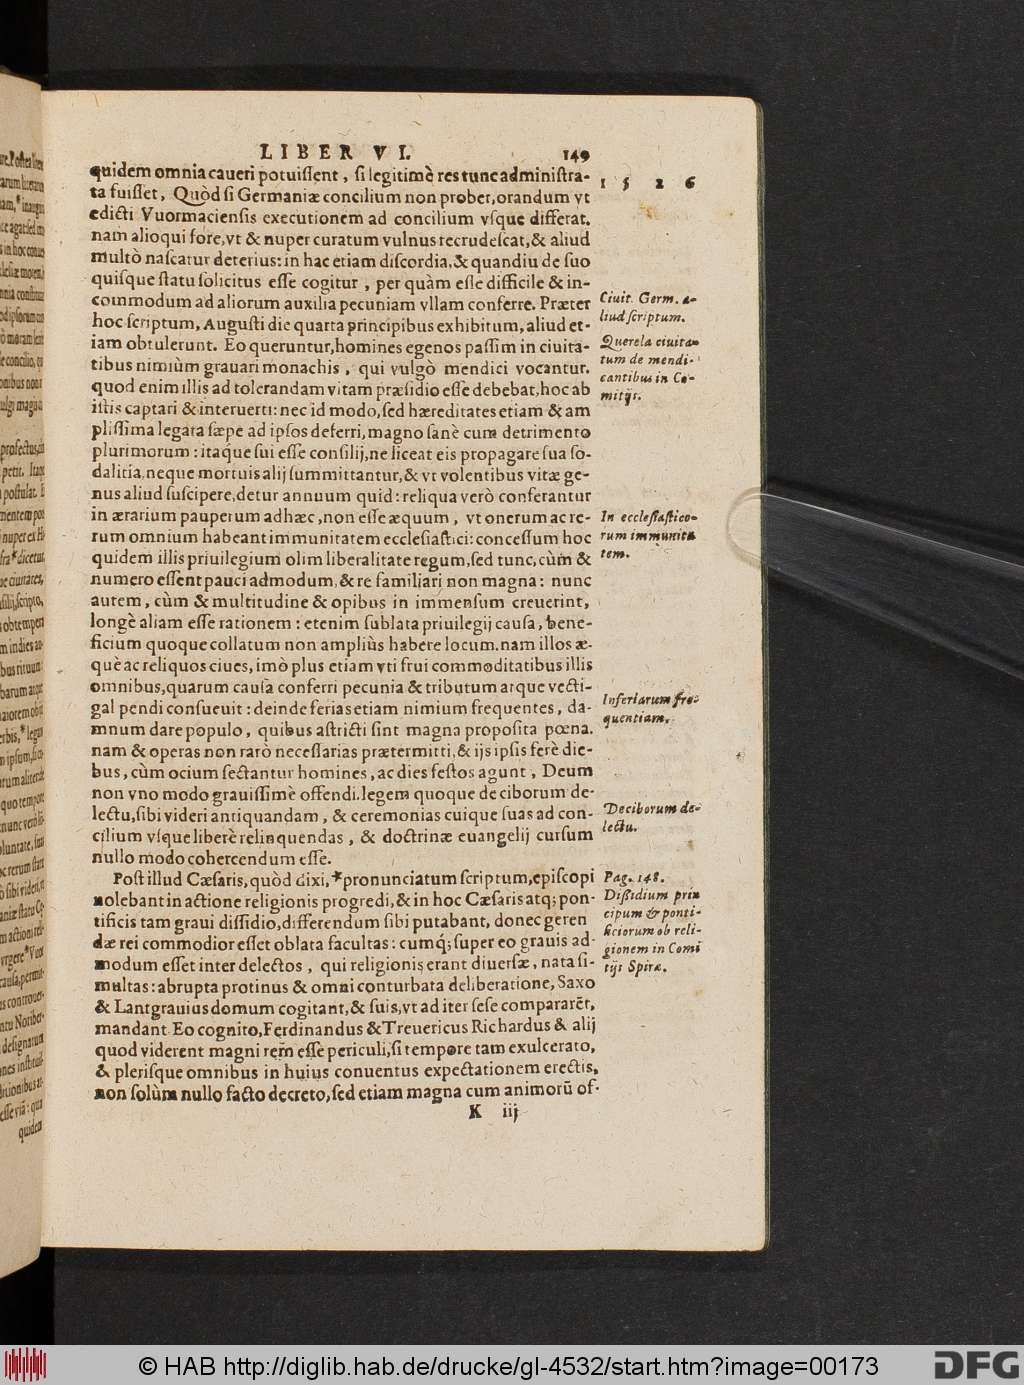 LIBER VI. 149
1 5 2 6
quidem omnia caueri potuiſſent, ſi legitimè res tunc adminiſtra-
ta fuiſſet, Quòd ſi Germaniæ concilium non probet, orandum vt
edicti Vuormacienſis executionem ad concilium vſque differat.
nam alioqui fore, vt & nuper curatum vulnus recrudeſcat, & aliud
multò naſcatur deterius: in hac etiam diſcordia, & quandiu de ſuo
quiſque ſtatu ſolicitus eſſe cogitur, per quàm eſſe difficile & in-
commodum ad aliorum auxilia pecuniam vllam conferre. Præter
hoc ſcriptum, Auguſti die quarta principibus exhibitum, aliud et-
iam obtulerunt. Eo queruntur, homines egenos paſſim in ciuita-
tibus nimiùm grauari monachis, qui vulgò mendici vocantur.
quod enim illis ad tolerandam vitam præſidio eſſe debebat, hoc ab
iſtis captari & interuerti: nec id modo, ſed hæreditates etiam & am
pliſſima legata ſæpe ad ipſos deferri, magno ſanè cum detrimento
plurimorum: itaque ſui eſſe conſilij, ne liceat eis propagare ſua ſo-
dalitia, neque mortuis alij ſummittantur, & vt volentibus vitæ ge-
nus aliud ſuſcipere, detur annuum quid: reliqua verò conferantur
in ærarium pauperum adhæc, non eſſe æquum, vt onerum ac re-
rum omnium habeant immunitatem eccleſiaſtici: conceſſum hoc
quidem illis priuilegium olim liberalitate regum, ſed tunc, cùm &
numero eſſent pauci admodum, & re familiari non magna: nunc
autem, cùm & multitudine & opibus in immenſum creuerint,
longè aliam eſſe rationem: etenim ſublata priuilegij cauſa, bene-
ficium quoque collatum non ampliùs habere locum. nam illos æ-
què ac reliquos ciues, imò plus etiam vti frui commoditatibus illis
omnibus, quarum cauſa conferri pecunia & tributum atque vecti-
gal pendi conſueuit: deinde ferias etiam nimium frequentes, da-
mnum dare populo, quibus aſtricti ſint magna propoſita pœna.
nam & operas non rarò neceſſarias prætermitti, & ijs ipſis ferè die-
bus, cùm ocium ſectantur homines, ac dies feſtos agunt, Deum
non vno modo grauiſſimè offendi. legem quoque de ciborum de-
lectu, ſibi videri antiquandam, & ceremonias cuique ſuas ad con-
cilium vſque liberè relinquendas, & doctrinæ euangelij curſum
nullo modo cohercendum eſſe.
Poſt illud Cæſaris, quòd dixi, *pronunciatum ſcriptum, epiſcopi
nolebant in actione religionis progredi, & in hoc Cæſaris atq; pon-
tificis tam graui diſſidio, differendum ſibi putabant, donec geren
dæ rei commodior eſſet oblata facultas: cumq́; ſuper eo grauis ad-
modum eſſet inter delectos, qui religionis erant diuerſæ, nata ſi-
multas: abrupta protinus & omni conturbata deliberatione, Saxo
& Lantgrauius domum cogitant, & ſuis, vt ad iter ſeſe compararẽt,
mandant. Eo cognito, Ferdinandus & Treuericus Richardus & alij
quod viderent magni rem̄ eſſe periculi, ſi tempore tam exulcerato,
& pleriſque omnibus in huius conuentus expectationem erectis,
non ſolùm nullo facto decreto, ſed etiam magna cum animorū of-
K iij
Ciuit. Germ. a-
liud ſcriptum.
Querela ciuita-
tum de mendi-
cantibus in Co-
mitijs.
In eccleſiaſtico-
rum immunita
tem.
Inferiarum fre-
quentiam.
De ciborum de-
lectu.
Pag. 148.
Diſſidium prin
cipum & ponti-
ficiorum ob reli-
gionem in Comi
tijs Spiræ.
© HAB http://diglib.hab.de/drucke/gl-4532/start.htm?image=00173
DFG